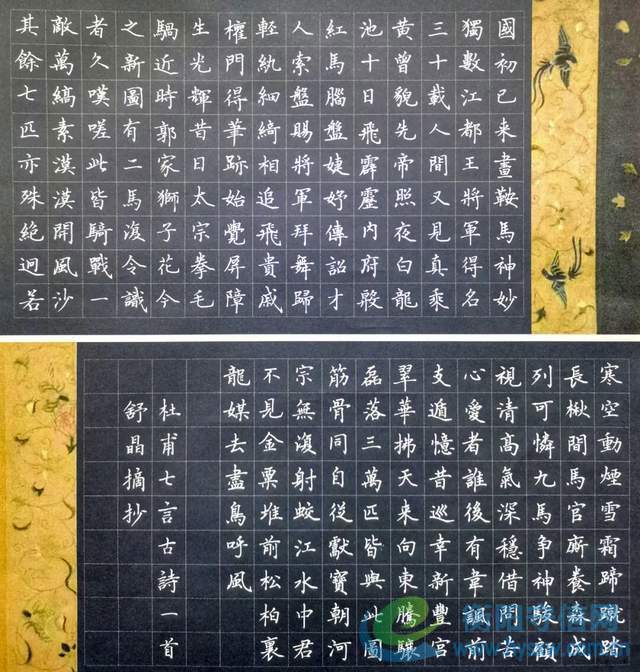 國初已來畫鞍馬神妙
獨數江都王將軍得名
三十載人間又見真乘
黃曾貌先帝照夜白龍
池十日飛霹靂內府殷
紅馬腦盤婕妤傳詔才
人索盤賜將軍拜舞歸
輕紈細綺相追飛貴戚
權門得筆跡始覺屏障
生光輝昔日太宗拳毛
騧近時郭家獅子花今
之新圖有二馬復令識
者久嘆嗟此皆騎戰一
敵萬縞素漠漠開風沙
其餘七匹亦殊絕迥若
寒空動煙雪霜蹄蹴踏
長楸間馬官廝養森成
列可憐九馬爭神駿顧
視清高氣深穩借問苦
心愛者誰後有韋諷前
支遁憶昔巡幸新豐宮
翠華拂天來向東騰驤
磊落三萬匹皆與此圖
筋骨同自從獻寶朝河
宗無復射蛟江水中君
不見金粟堆前松柏裏
龍媒去盡鳥呼風
杜甫七言古詩一首
舒晶摘抄